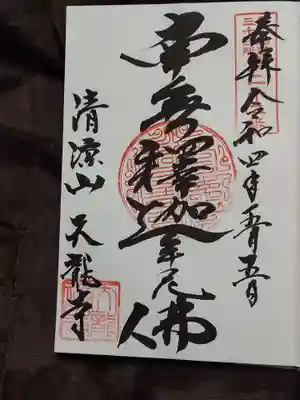 奉拝 令和四年五月五日
南無釋迦牟尼佛
清涼山 天龍寺